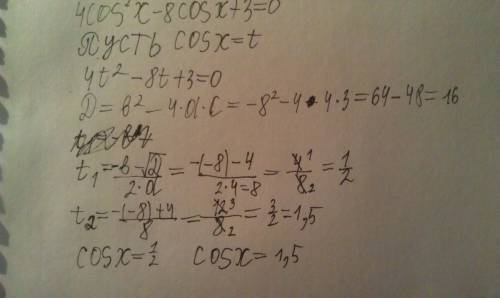 4cos²x-8cosx+3=0
ПУСТЬ cosx=t
4t²-8t+3=0
D=в²-4·a·c=-8²-4·4·3=64-48=16
t₁=(-в-√D)/(2·a)=(-(-8)-4)/(2·4=8)=4¹/8₂=1/2
t₂=(-(-8)+4)/8=12³/8₂=3/2=1,5
cosx=1/2 cosx=1,5